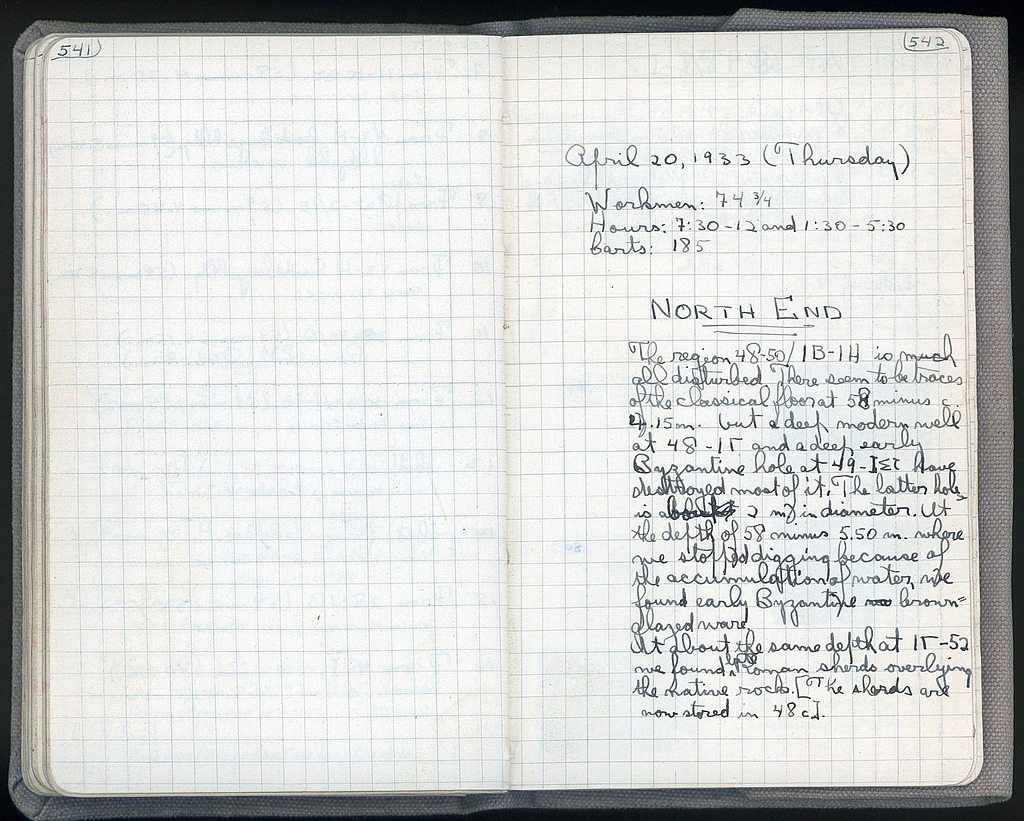 541
542
April 20, 1933 (Thursday)
Workmen: 74 3/4
Hours: 7:30 - 12 and 1:30 - 5:30
Carts: 185
NORTH END
The region 48-50/ 1B-1H is much
all disturbed. There seem to be traces
of the classical floor at 58 minus c.
4.15m. but a deep modern well
at 48 - 1Γ and a deep early
Byzantine hole at 49 - have
destroyed most of it. The latter hole
is about 2 m. in diameter. At
the depth of 58 minus 5.50 m. where
we stopped digging because of
the accumulation of water, we
found early Byzantine brown=
glazed ware.
At about the same depth at 1Γ-52
we found late Roman sherds overlying
the native rock. [The sherds are
now stored in 48 c].